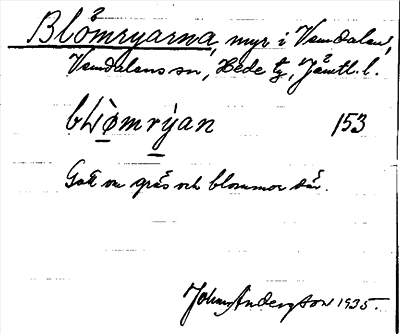 Blömryarna, myr i Vemdalen,
Vemdalens sn, Hede tg, Jämtl. l.
blòmrỳan 153
Gott om gräs och blommor där.
Johan Anderzson 1935.